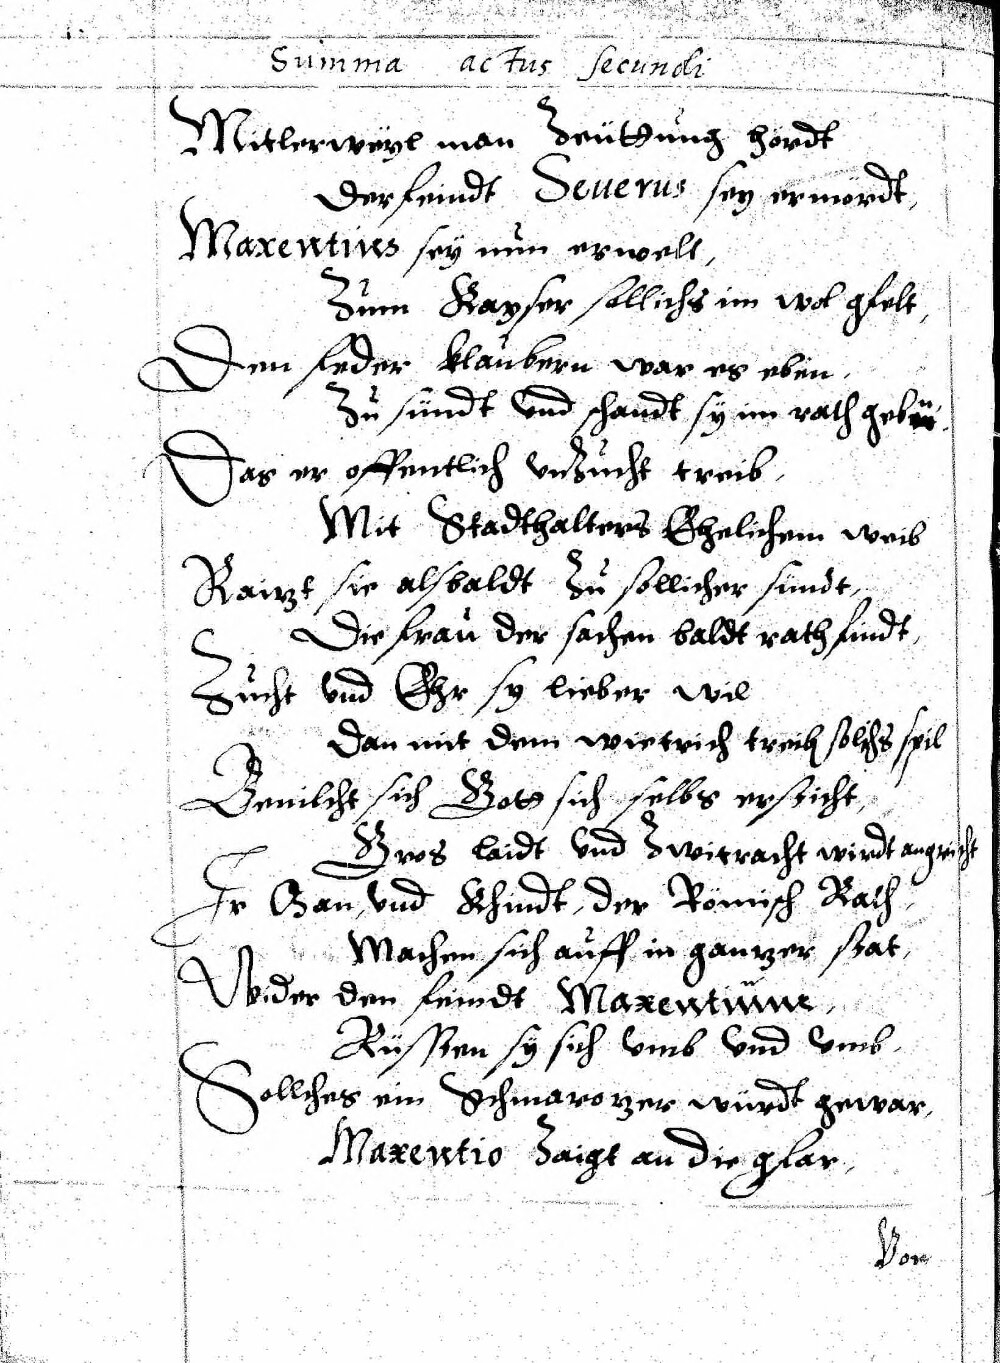 Summa actus secundi
Mitlerweyl man Zeüttung hördt
Der feindt Seuerus sey ermördt,
Maxentius sey nun erwelt,
Zum Kayser sollichs im wol gfelt,
Den feder klaubern war es eben,
Zu sündt vnd schandt sy im rath geben.
Das er offentlich vnzucht treib,
Mit Stadthalters Ehelichem weib
Raitzt sie alsbaldt zu sollicher sündt,
Die frau der sachen baldt rath findt,
Zucht vnd Ehr sy lieber wil
Dan mit dem wietrich treiben solchs spil
Beuilcht sich Gott sich selbs ersticht,
Gros laidt vnd Zwitracht wirdt angricht
Ir Man, vnd Khindt, der Römisch Rath,
Machen sich auff in gantzer stat,
Wider den feindt Maxentium,
Rüssten sy sich vmb vnd vmb,
Sollches ein Schmarotzer würdt gewar,
Maxentio Zaigt an die gfar,
Vor